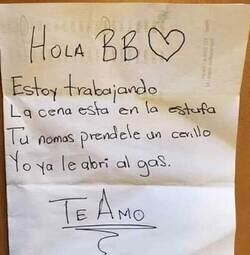 HOLA BB♡
Estoy trabajando
La cena esta en la estufa
Tu nomas prendele un cerillo
Yo ya le abri al gas.
TE AMO